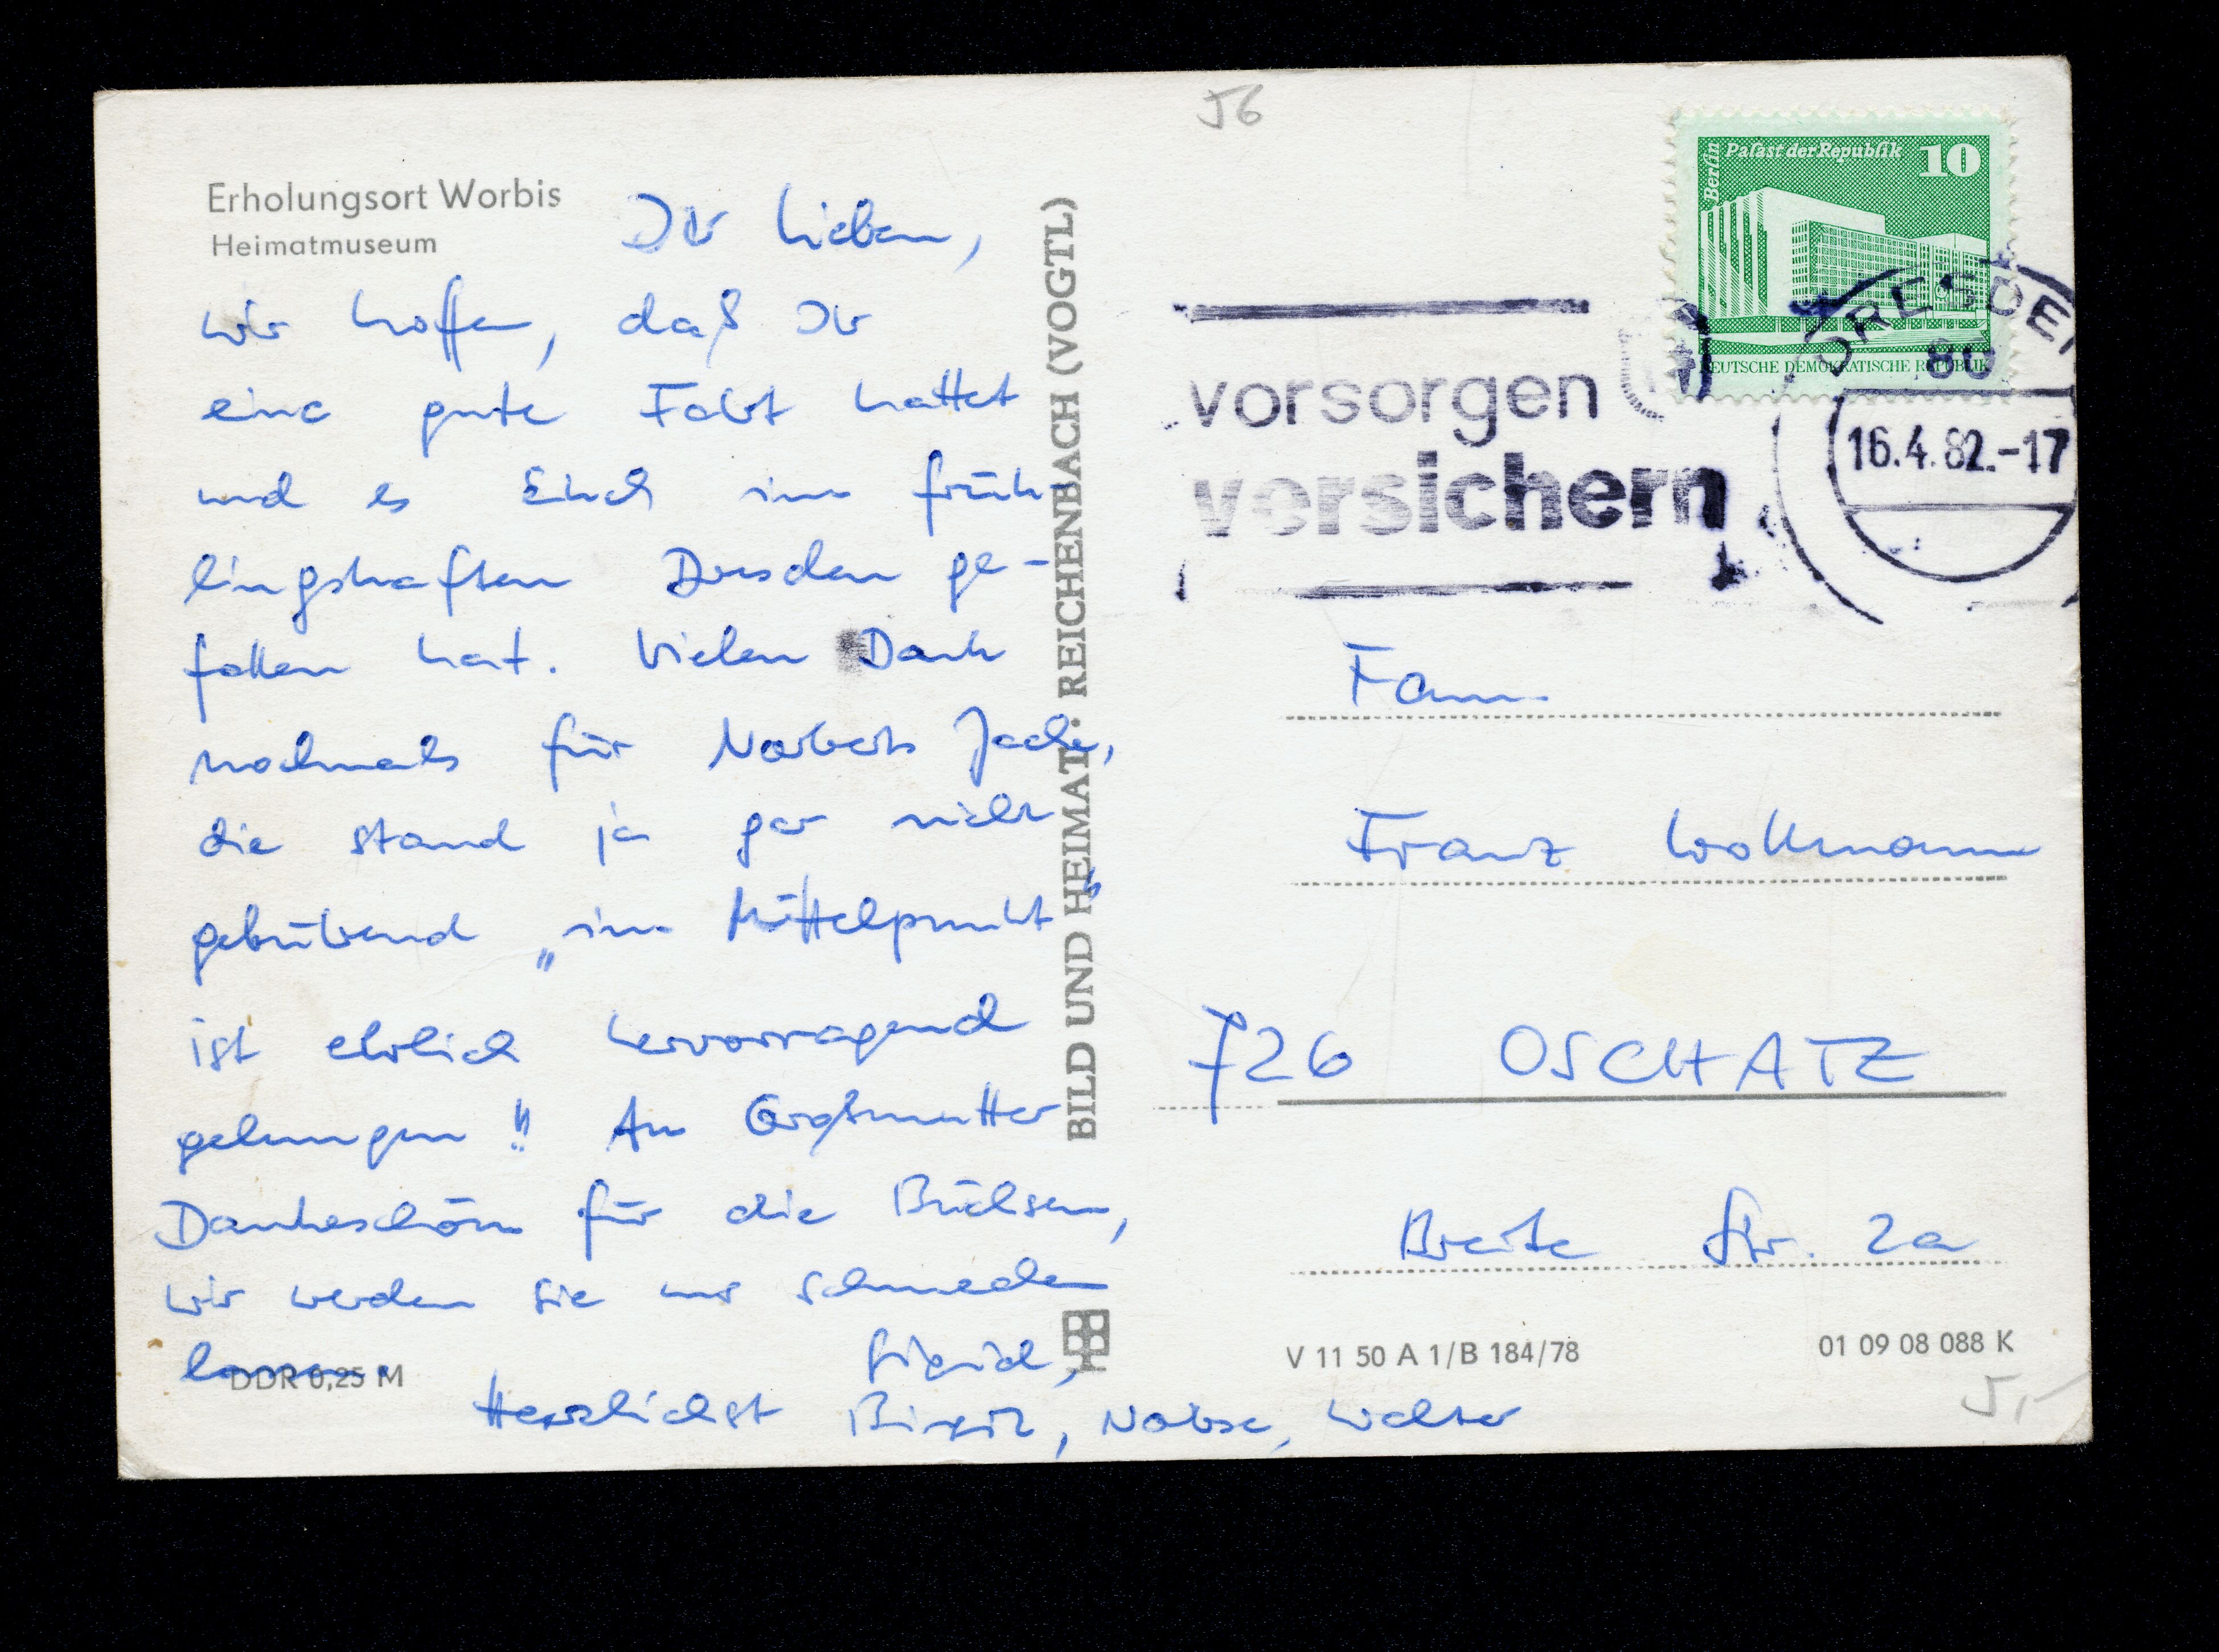 56
Erholungsort Worbis
Heimatmuseum
Ihr Lieben,
wir hoffen, daß Ihr
eine gute Fahrt hattet
und es Euch im früh-
lingshaften Dresden ge-
fallen hat. Vielen Dank
nochmals für Norberts Jacke,
die stand ja gar nicht
gebührend „im Mittelpunkt"
ist ehrlich hervorragend
gelungen!! An Großmutter
Dankeschön für die Büchsen,
wir werden sie uns schmecken
lassen.
Sigrid,
Herzlichst Birgit, Nobse, Walter
DDR 0,25 M
BILD UND HEIMAT · REICHENBACH (VOGTL)
Berlin
Palast der Republik 10
DEUTSCHE DEMOKRATISCHE REPUBLIK
DRESDEN
80
16.4.82.-17
vorsorgen
versichern
Fam.
Franz Wollmann
726 OSCHATZ
Breite Str. 2a
V 11 50 A 1/B 184/78
01 09 08 088 K
5,-